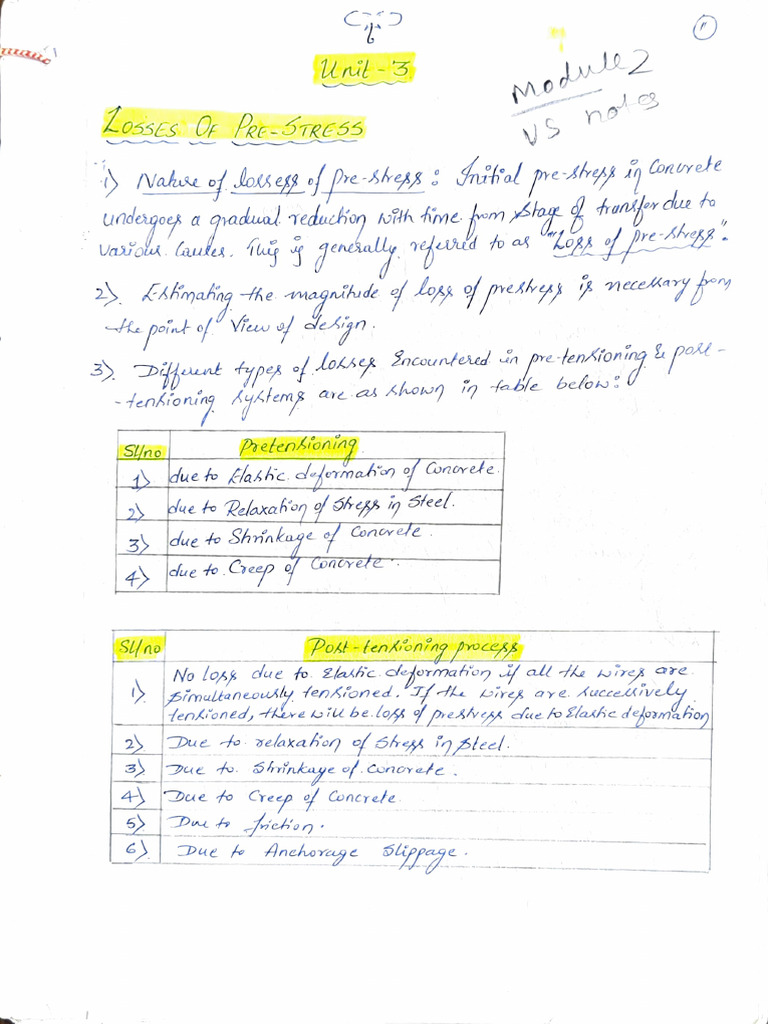 11
Unit - 3
Module 2
VS notes
LOSSES OF PRE-STRESS
1) Nature of lossess of pre-stress : Initial pre-stress in Concrete
undergoes a gradual reduction with time from stage of transfer due to
various Causes. This is generally referred to as "Loss of pre-stress".
2). Estimating the magnitude of loss of prestress is necessary from
the point of View of design.
3). Different types of losses Encountered in pre-tensioning & post-
-tensioning systems are as shown in table below:
Sl/no Pretensioning
1) due to Elastic deformation of Concrete.
2) due to Relaxation of Stress in Steel.
3) due to Shrinkage of Concrete
4) due to Creep of Concrete.
Sl/no Post-tensioning process
1) No loss due to Elastic deformation if all the wires are
simultaneously tensioned. If the wires are successively
tensioned, there will be loss of prestress due to Elastic deformation
2) Due to relaxation of Stress in Steel.
3) Due to Shrinkage of Concrete.
4) Due to Creep of Concrete
5) Due to friction.
6) Due to Anchorage Slippage.